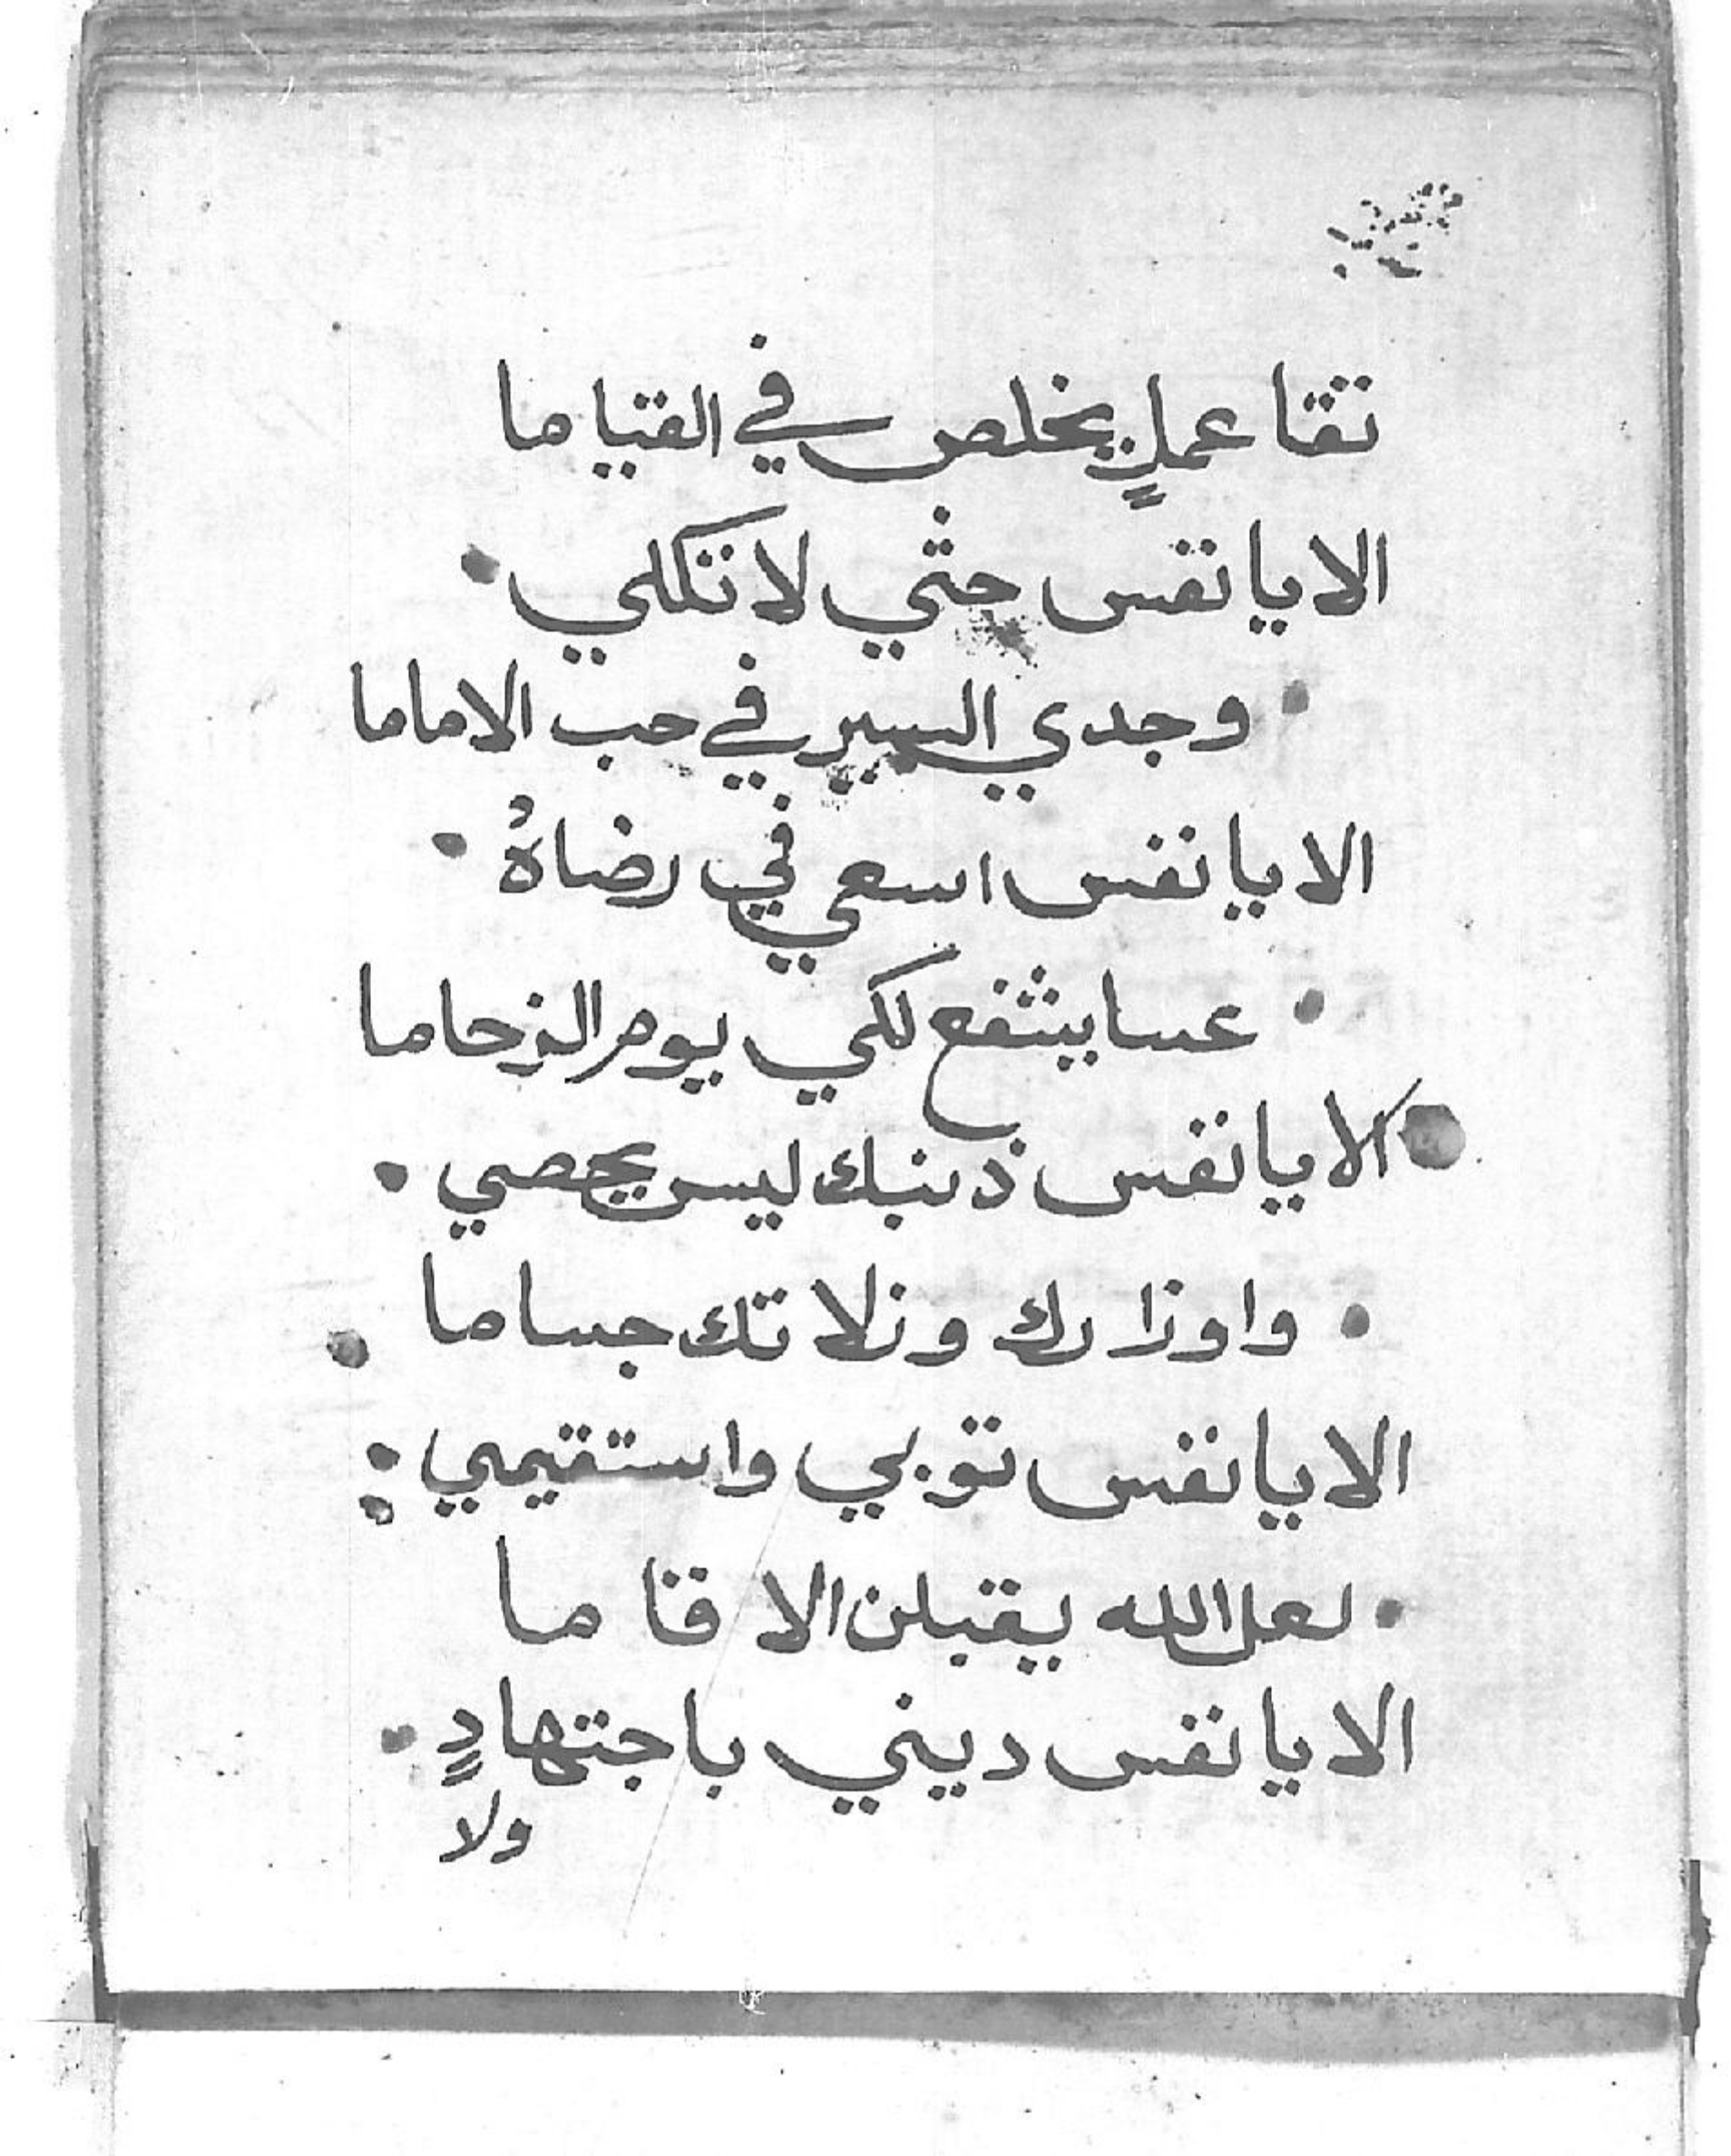 تقا عملٍ يخلص في القيا ما
الا يا نفس حثي لا تتكلي •
• وجدي السير في حب الاماما
الا يا نفس اسعي في رضاهُ •
• عسا يشفع لكي يوم الزحاما
الا يا نفس ذنبك ليس يحصي •
• واوزارك وزلاتك جساما •
الا يا نفس توبي واستقيمي :
• لعل الله يقبلن الا قا ما
الا يا نفس ديني باجتهادٍ •
ولا